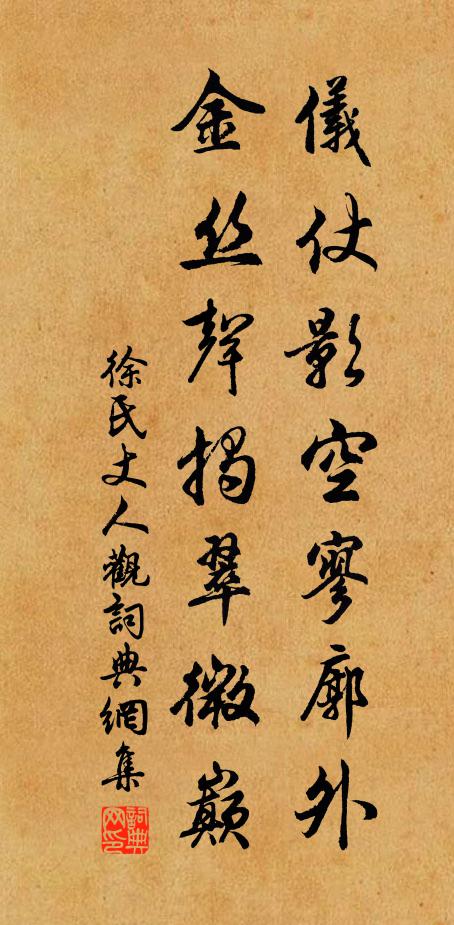 儀仗影空寥廓外
金丝聲揭翠微巔
徐氏丈人觀詞典網集
詞典网印